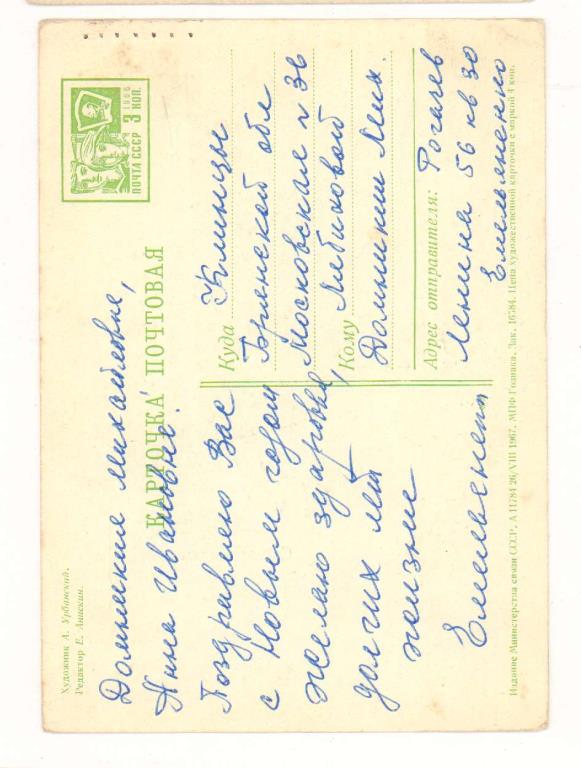 Художник А. Урбанский.
Редактор Е. Анискин.
КАРТОЧКА ПОЧТОВАЯ
1966
3 КОП.
ПОЧТА СССР
Домникие Михайловне,
Анна Ивановне!
Поздравляю Вас
с Новым годом
желаю здаровье,
долгих лет
жизне
Емельененко
Куда Клинцы
Брянской обл
Московская п 36
Кому Лебиковой
Домникии Мих.
Адрес отправителя: Рогачев
Ленина 56 кв 30
Емельяненко
Издание Министерства связи СССР. А 11784 26/VIII 1967. МПФ Гознака. Зак. 16784. Цена художественной карточки с маркой 4 коп.